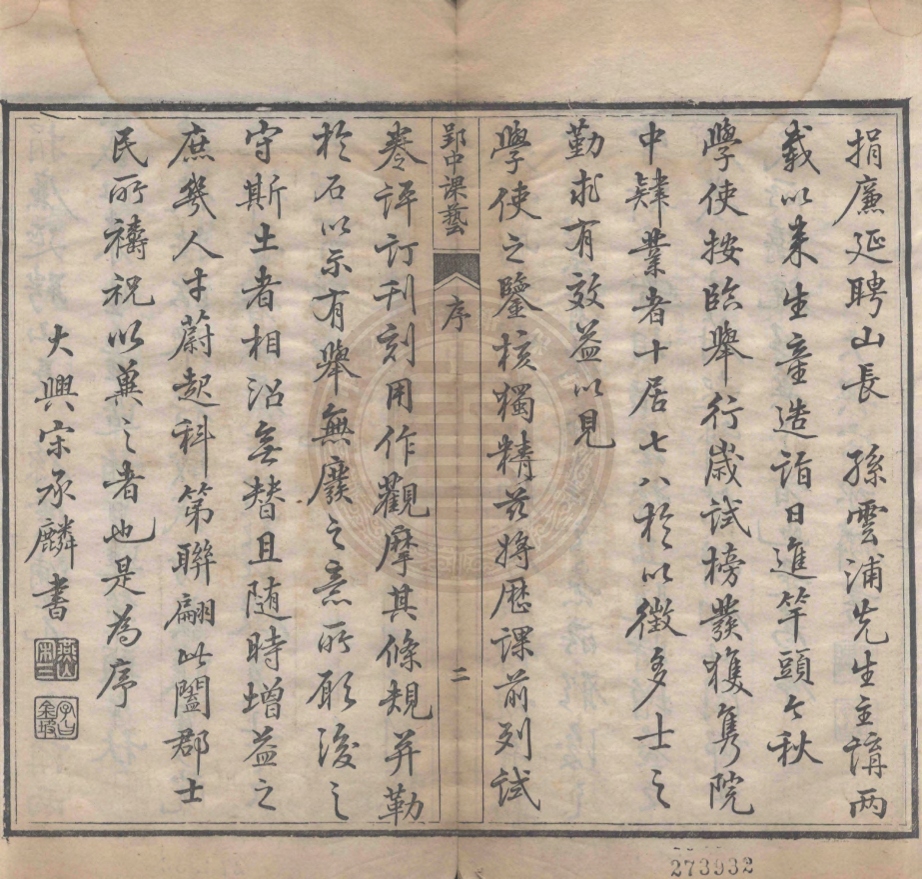 捐廉延聘山長　孫雲浦先生主講两
載以来生童造詣日進竿頭今秋
學使按臨舉行歲試榜發獲隽院
中肄業者十居七八於以徵多士之
勤求有效益以見
學使之鑒核獨精兹將歷課前列試
郢中課藝
序
二
卷評訂刊刻用作觀摩其條規并勒
於石以示有舉無廢之意所願後之
守斯土者相沿無替且随時增益之
庶幾人才蔚起科第聯翩此闔郡士
民所禱祝以冀之者也是為序
大興宋承麟書
燕山宋三
273932